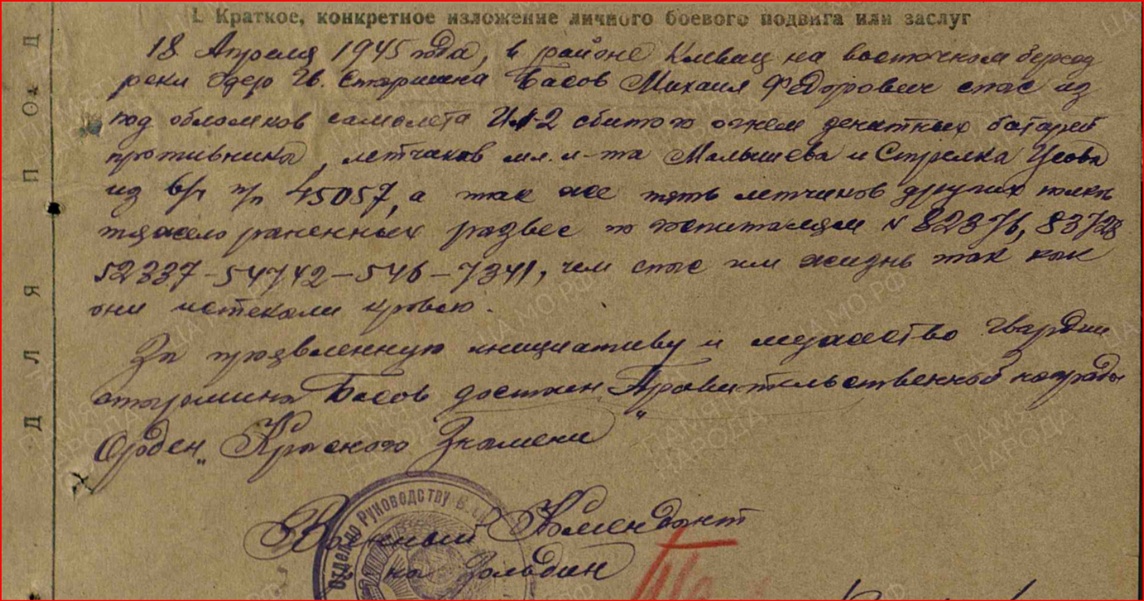 I. Краткое, конкретное изложение личного боевого подвига или заслуг
18 Апреля 1945 года, в районе на восточном берегу
реки Одер Гв. Старшина Басов Михаил Федорович спас из
под обломков самолета Ил-2 сбитого огнем зенитных батарей
противника, летчиков мл. л-та Малышева и Стрелка Усова
из в/ч п/п 45057, а так же пять летчиков других полков
тяжело раненных развес по госпиталям N 82376, 83728
52337-54742-546-7341, чем спас им жизнь так как
они истекали кровью.
За проявленную инициативу и мужество Гвардии
старшина Басов достоин Правительственной награды
Орден „Красного Знамени"
Военный Комендант
на Зольдин
Отдел по Руководству В.
ДЛЯ ПОД